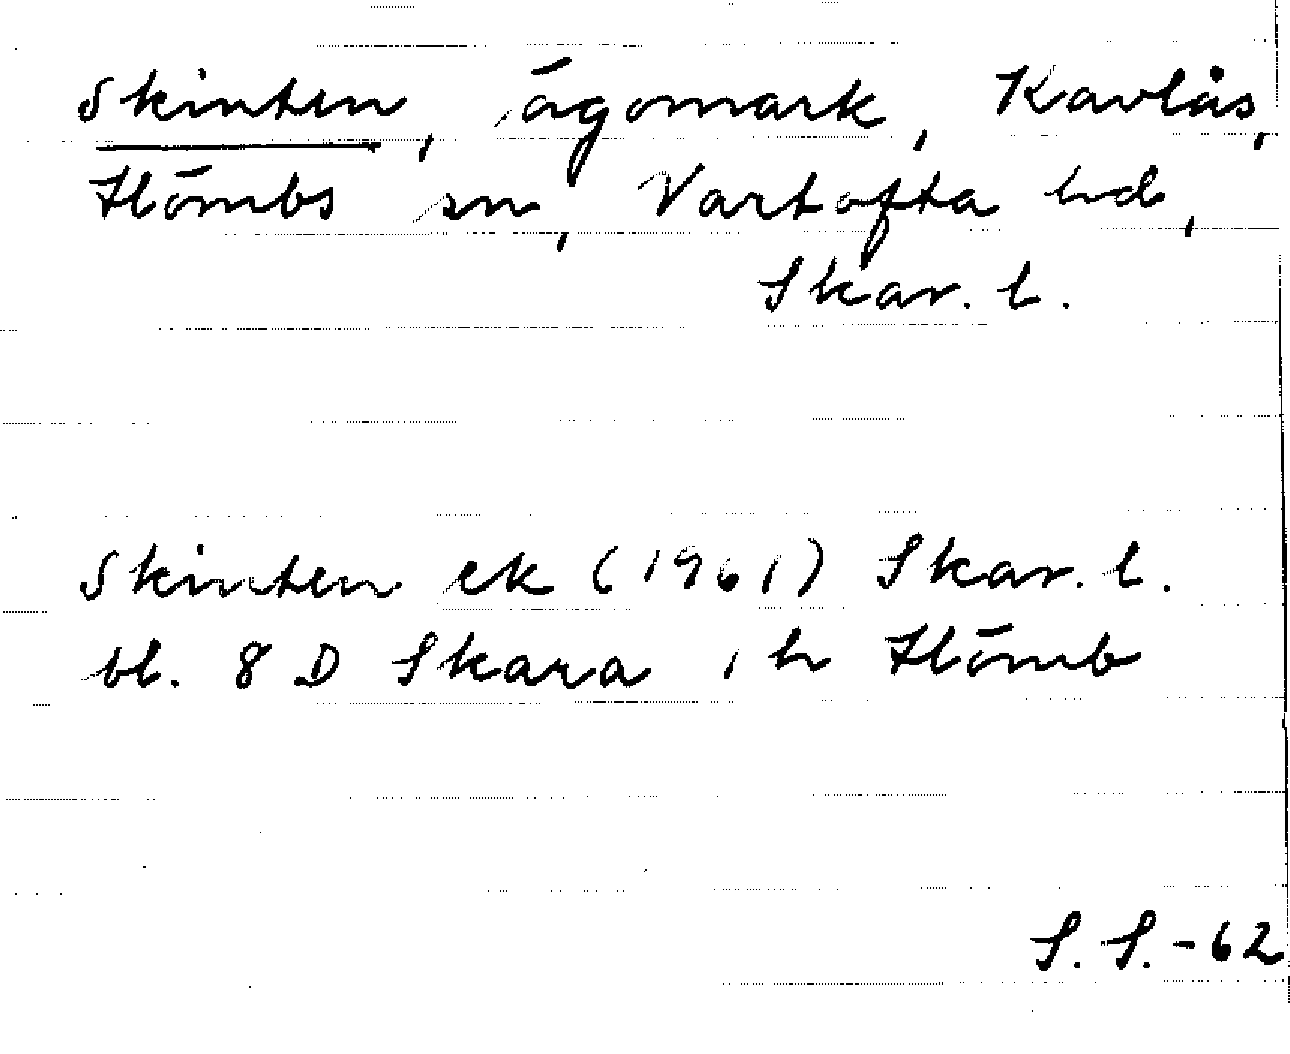 Skinten, ägomark, Kavlås,
Hömbs sn, Vartofta hd,
Skar. l.
Skinten ek (1961) Skar. l.
bl. 8 D Skara , h Hömb
S. S. -62